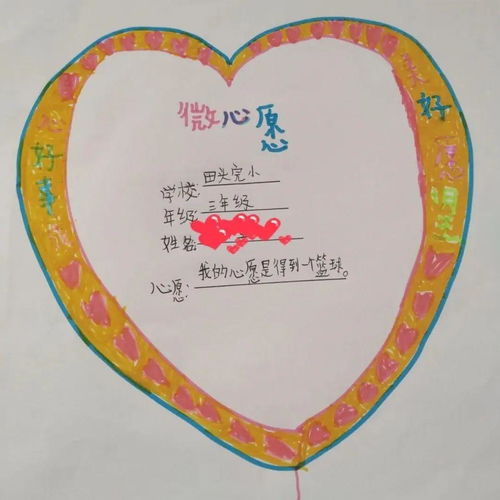 微心愿
学校:田头完小
年级:三年级
姓名:
心愿:我的心愿是得到一个篮球。
好事
美好